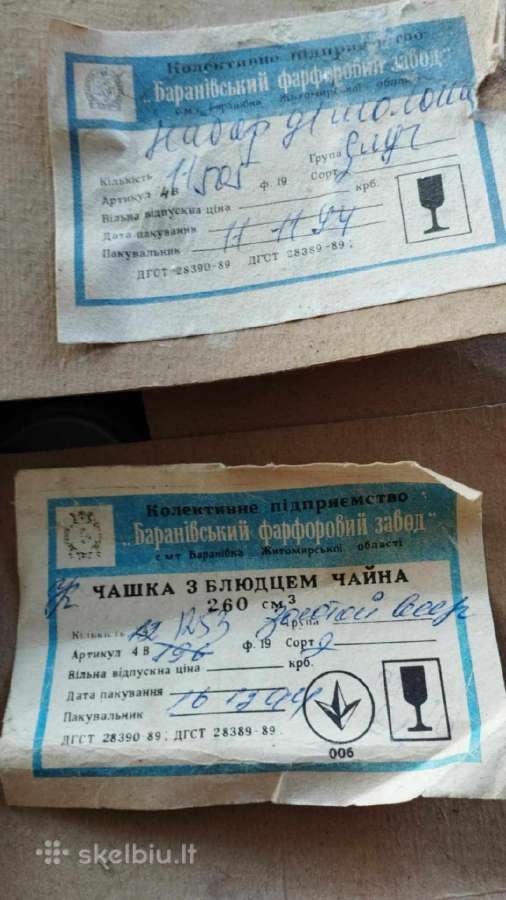 Колективне підприємство
"Баранівський фарфоровий завод"
смт Баранівка Житомирської області
Набор
Кількість 11 Група
Артикул 4В 505 ф. 19 Сорт
Вільна відпускна ціна крб.
Дата пакування 11 11 94
Пакувальник
ДГСТ 28390-89 ДГСТ 28389-89;
Колективне підприємство
"Баранівський фарфоровий завод"
смт Баранівка Житомирської області
ЧАШКА З БЛЮДЦЕМ ЧАЙНА
260 см3
Кількість 12 1253 Група
Артикул 4 В 196 ф. 19 Сорт 2
Вільна відпускна ціна крб.
Дата пакування 16
Пакувальник
ДГСТ 28390-89; ДГСТ 28389-89.
006
skelbiu.lt